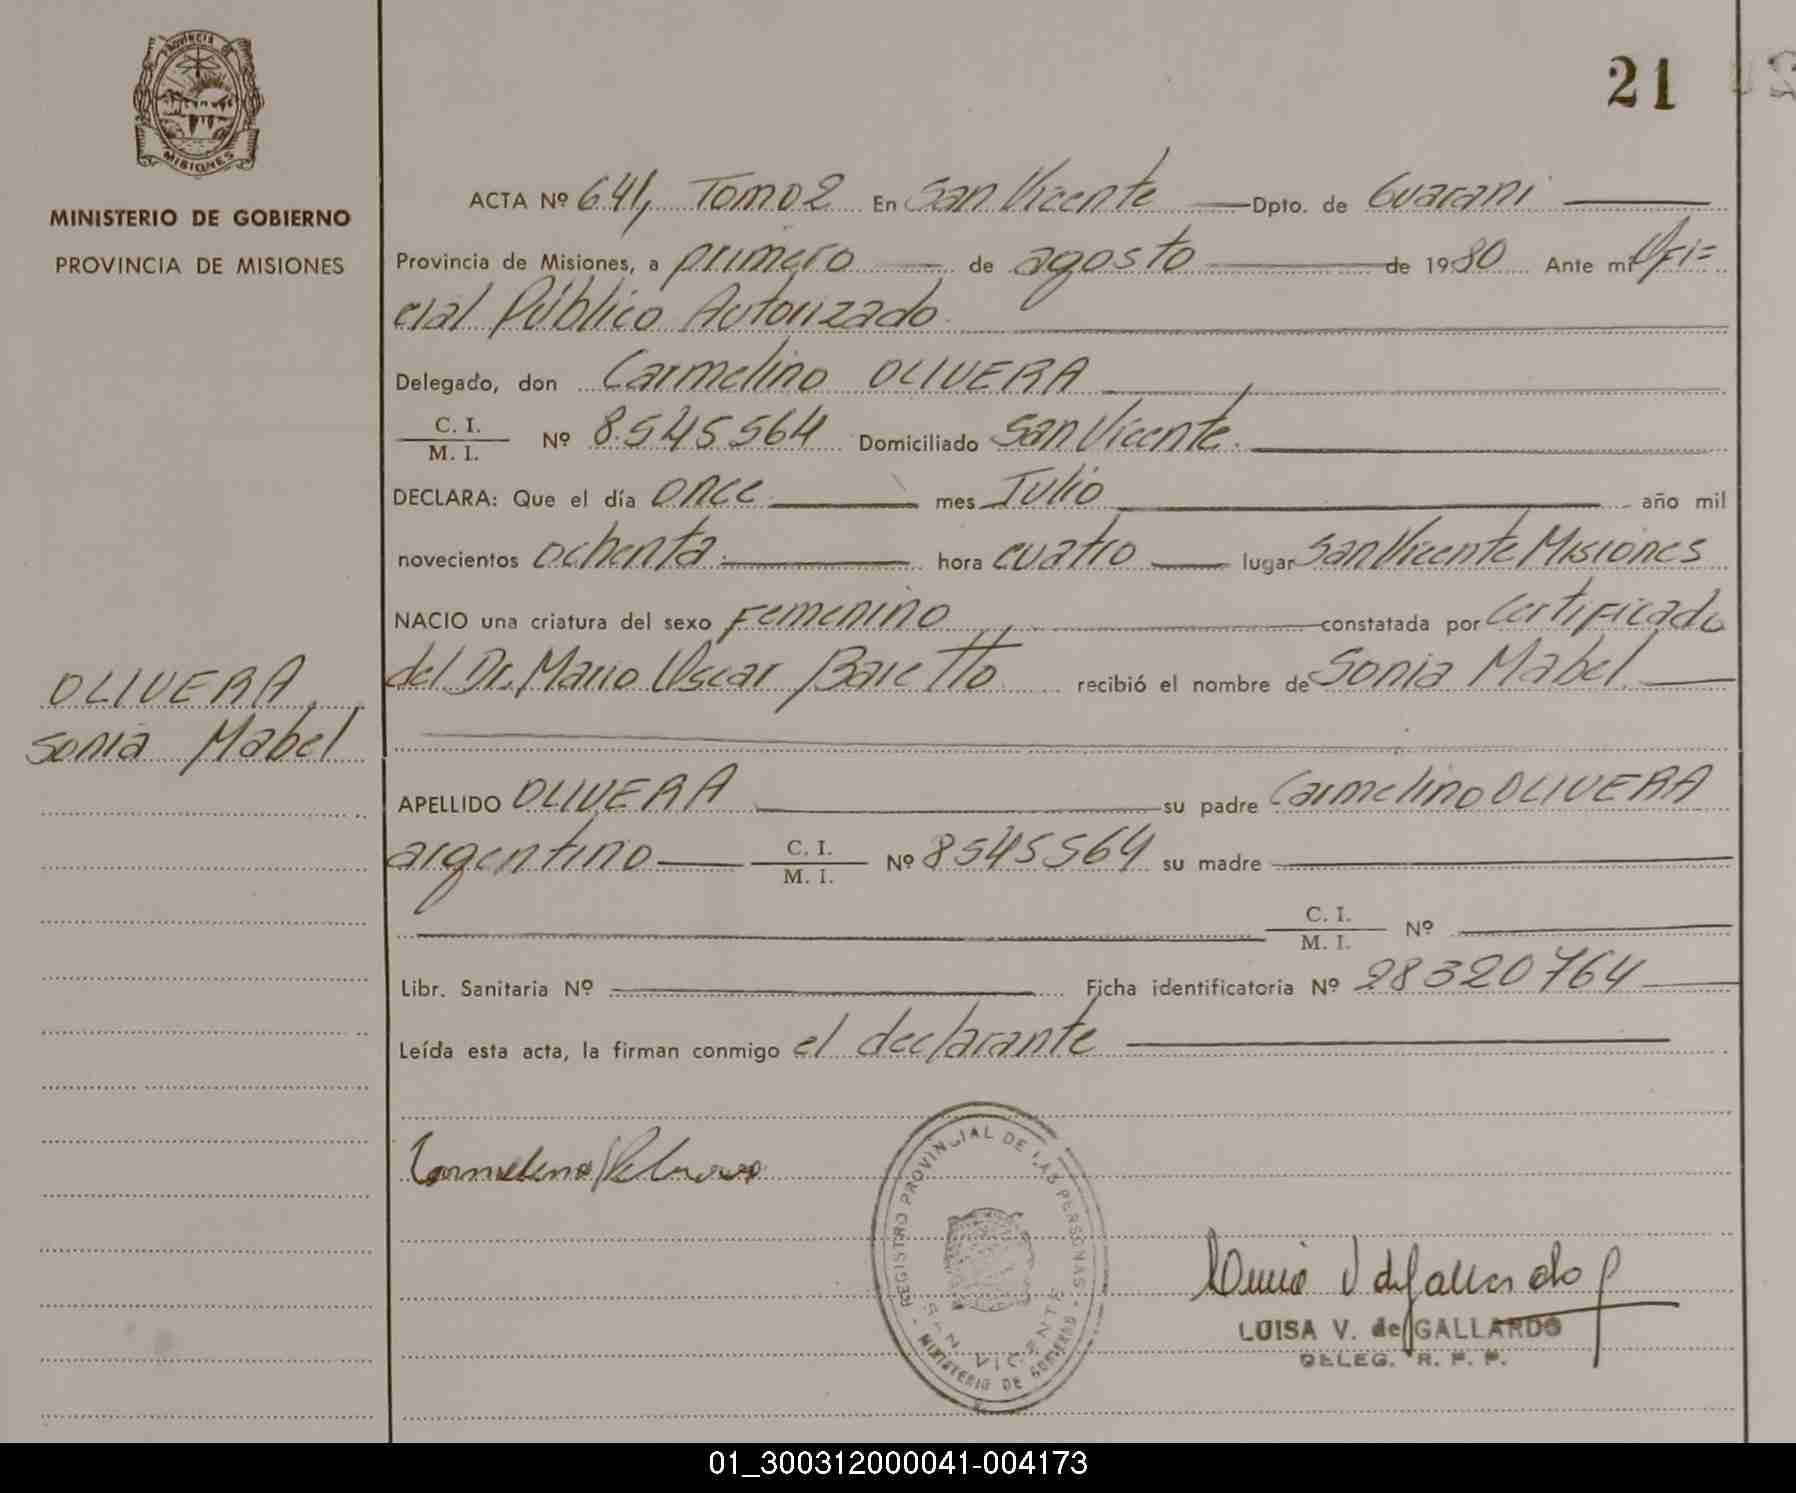 PROVINCIA DE
MISIONES
MINISTERIO DE GOBIERNO
PROVINCIA DE MISIONES
OLIVERA,
Sonia Mabel
21
ACTA Nº 641, Tomo 2 En San Vicente Dpto. de Guarani
Provincia de Misiones, a primero de agosto de 1980 Ante mi Ofi=
cial Público Autorizado
Delegado, don Carmelino OLIVERA
C. I.
M. I. Nº 8.545564 Domiciliado San Vicente.
DECLARA: Que el día once mes Julio año mil
novecientos ochenta hora cuatro lugar San Vicente Misiones
NACIO una criatura del sexo Femenino constatada por certificado
del Dr. Mario Oscar Baretto recibió el nombre de Sonia Mabel
APELLIDO OLIVERA su padre Carmelino OLIVERA
argentino C. I.
M. I. Nº 8545564 su madre
C. I.
M. I. Nº
Libr. Sanitaria Nº Ficha identificatoria Nº 28320764
Leída esta acta, la firman conmigo el declarante
REGISTRO PROVINCIAL DE LAS PERSONAS
SAN VICENTE
MINISTERIO DE GOBIERNO
LUISA V. de GALLARDO
DELEG. R. P. P.
01_300312000041-004173